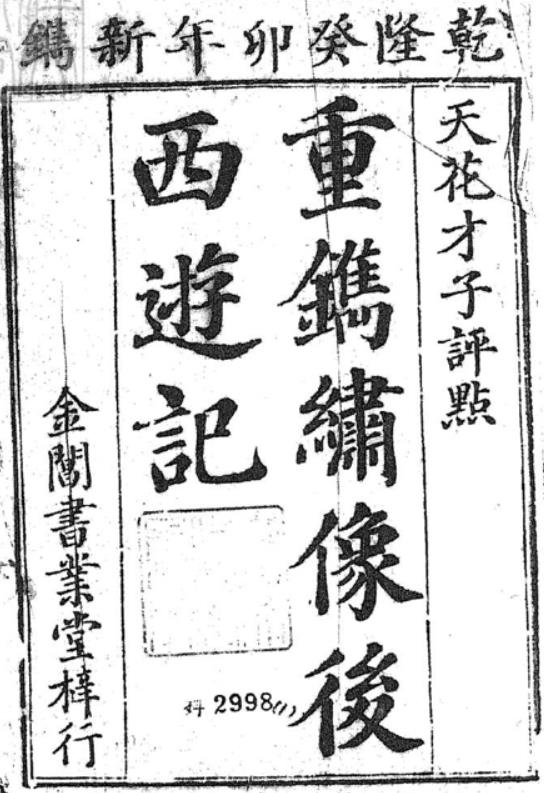 乾隆癸卯年新鐫
天花才子評點
重鐫繡像後
西遊記
金閶書業堂梓行
2998(1)